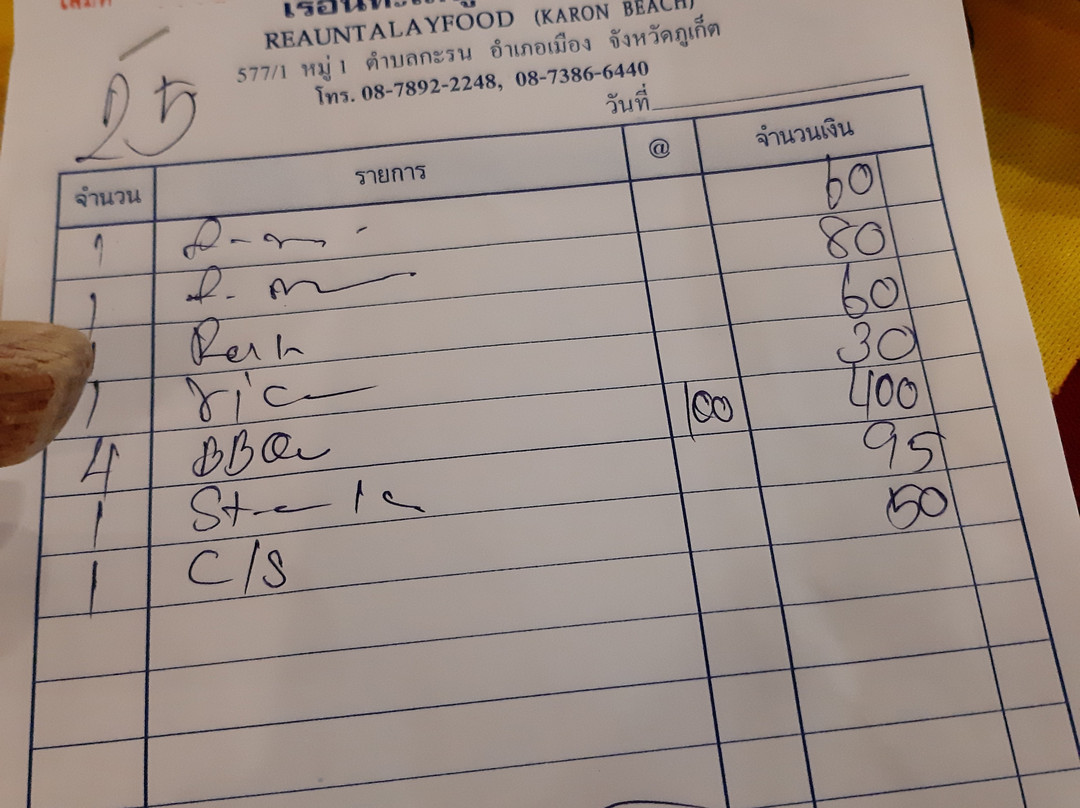 REAUNTALAYFOOD (KARON BEACH)
577/1 หมู่ 1 ตำบลกะรน อำเภอเมือง จังหวัดภูเก็ต
โทร. 08-7892-2248, 08-7386-6440
25
วันที่
จำนวน รายการ @ จำนวนเงิน
1 60
1 80
60
1 ric 30
4 BBQ 100 400
1 95
1 C/S 50